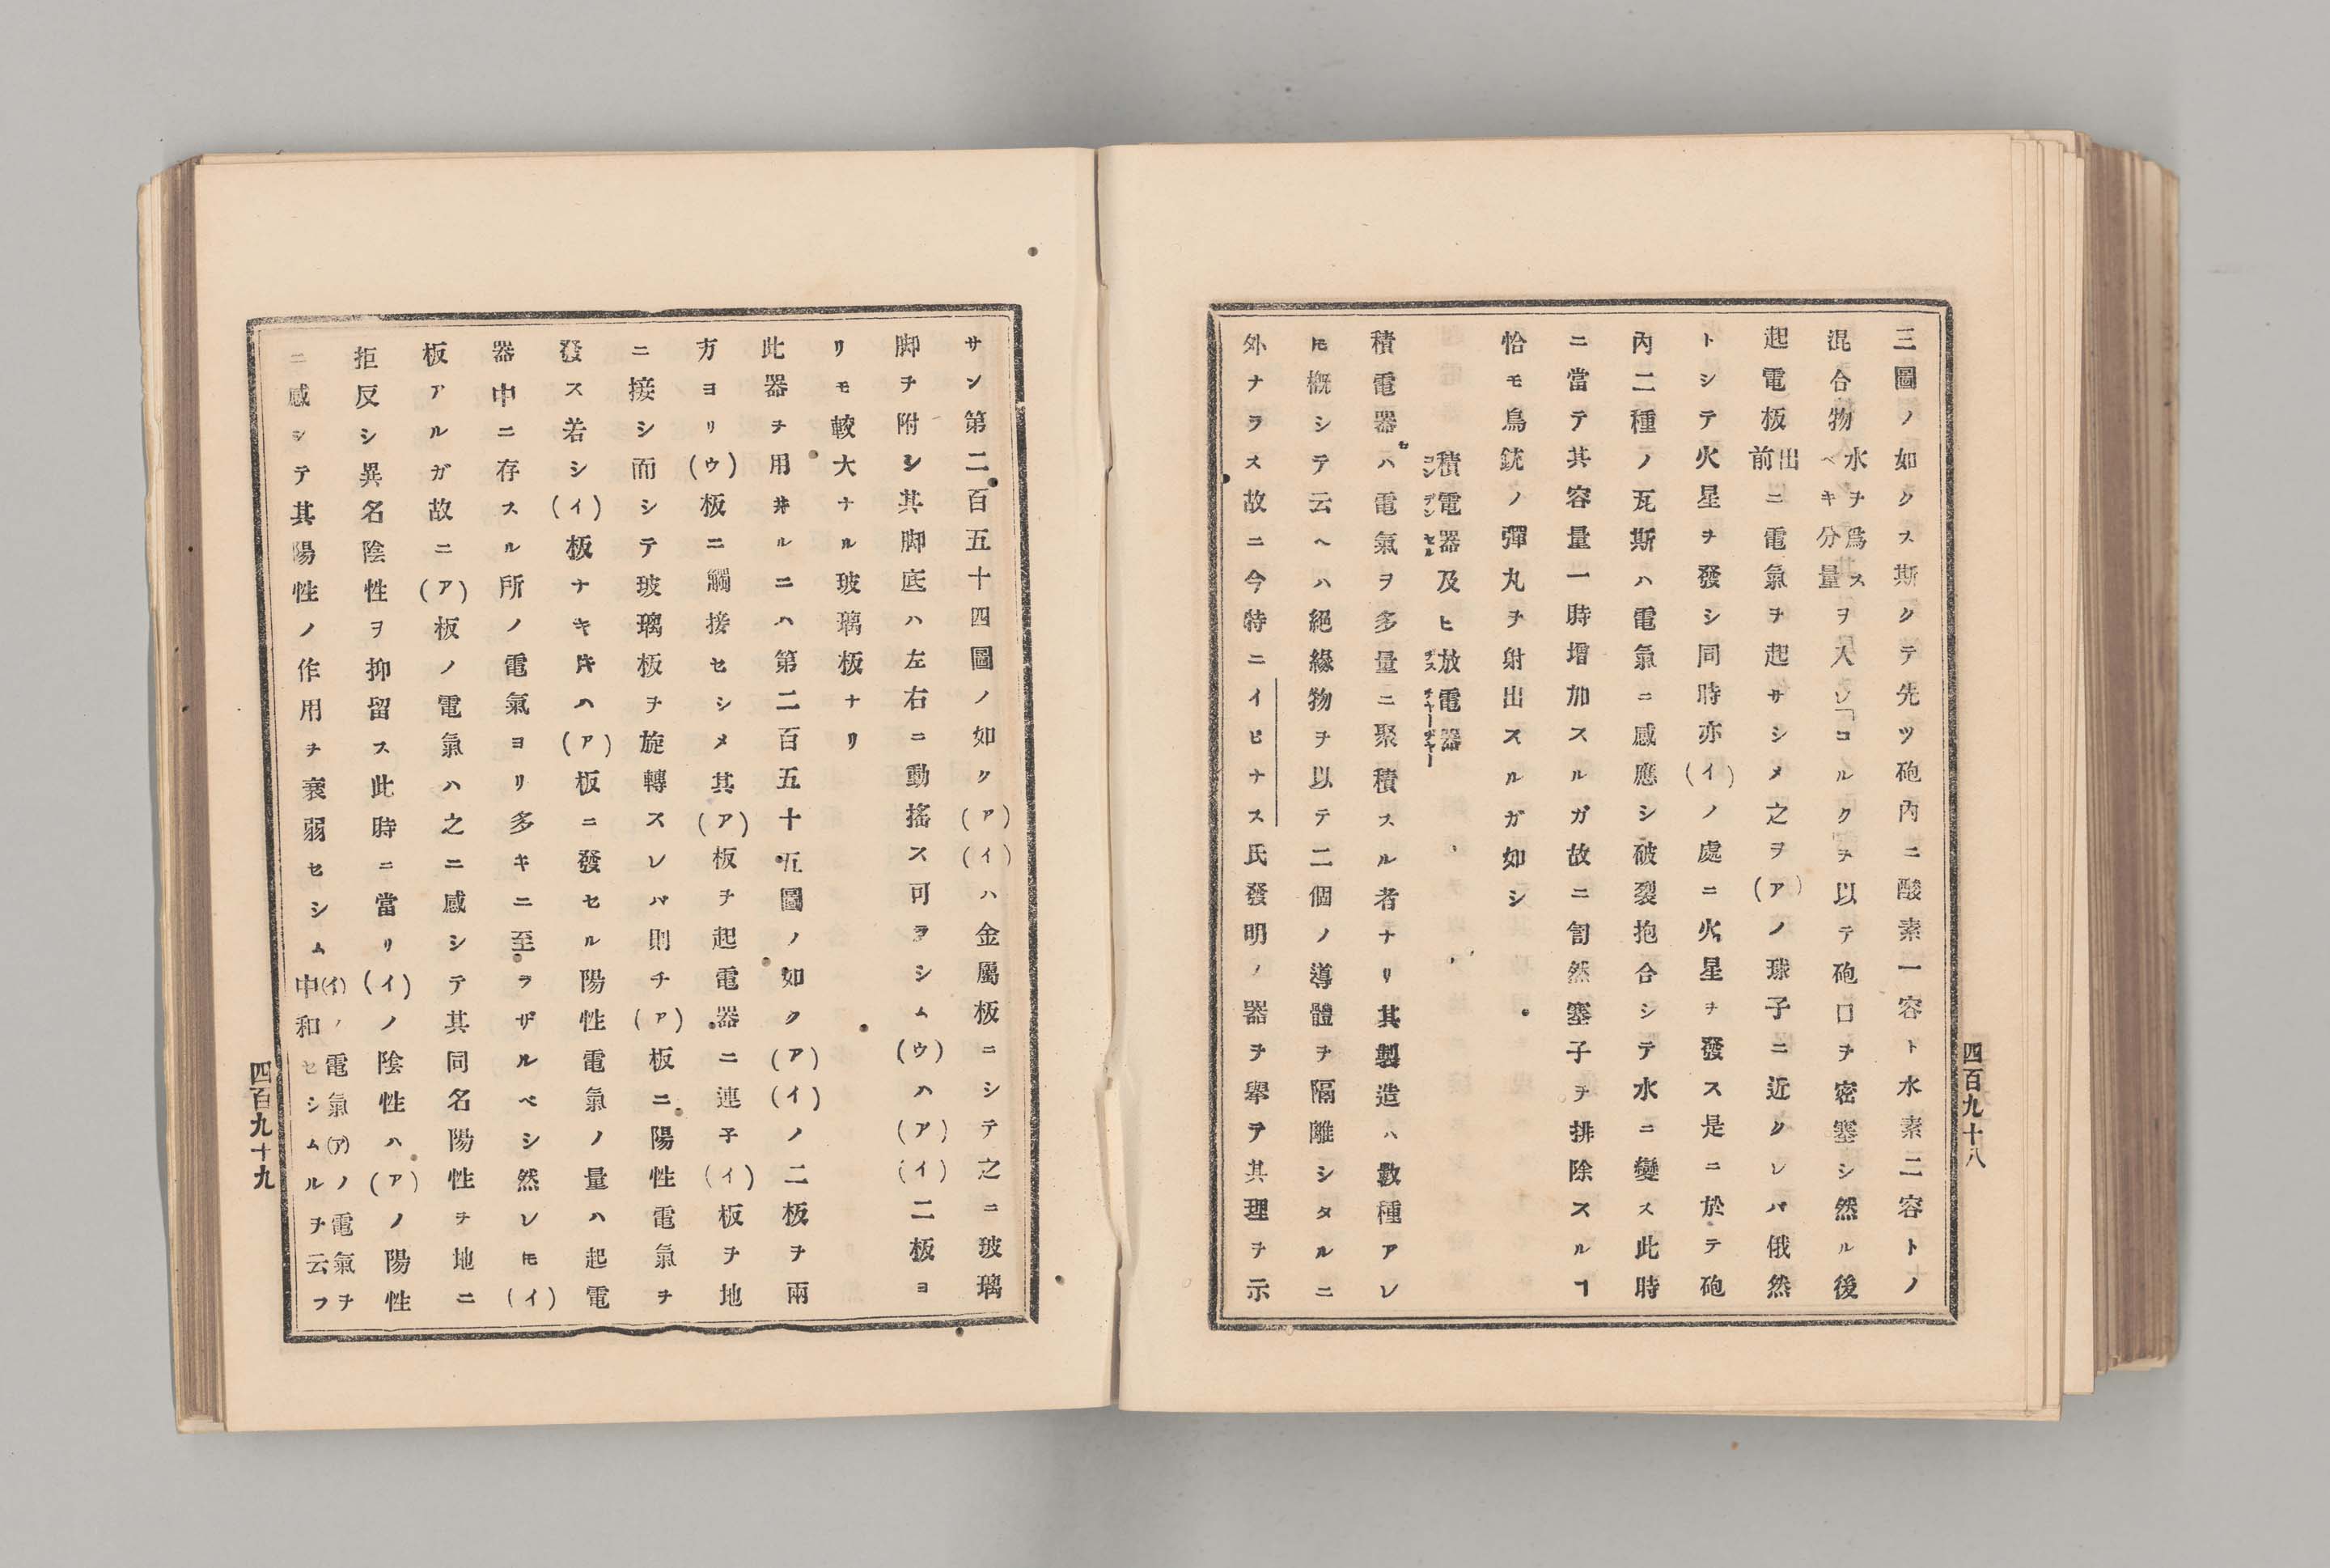 三圖ノ如クス斯クテ先ツ砲內ニ酸素一容ト水素二容トノ
混合物水ヲ爲スベキ分量ヲ入レ「コルク」ヲ以テ砲口ヲ密塞シ然ル後
起電板前出ニ電氣ヲ起サシメ之ヲ(ア)ノ球子ニ近クレバ俄然
トシテ火星ヲ發シ同時亦(イ)ノ處ニ火星ヲ發ス是ニ於テ砲
內二種ノ瓦斯ハ電氣ニ感應シ破裂抱合シテ水ニ變ス此時
ニ當テ其容量一時增加スルガ故ニ訇然塞子ヲ排除スルヿ
恰モ鳥銃ノ彈丸ヲ射出スルガ如シ
積電器及ヒ放電器
コンデンセル
ヂスチャーヂャー
積電器ハ電氣ヲ多量ニ聚積スル者ナリ其製造ハ數種アレ
𪜈概シテ云ヘハ絕緣物ヲ以テ二個ノ導體ヲ隔離シタルニ
外ナラス故ニ今特ニイヒナス氏發明ノ器ヲ擧テ其理ヲ示
四百九十八
サン第二百五十四圖ノ如ク(ア)(イ)ハ金屬板ニシテ之ニ玻璃
脚ヲ附シ其脚底ハ左右ニ動搖ス可ラシム(ウ)ハ(ア)(イ)二板ヨ
リモ較大ナル玻璃板ナリ
此器ヲ用井ルニハ第二百五十五圖ノ如ク(ア)(イ)ノ二板ヲ兩
方ヨリ(ウ)板ニ觸接セシメ其(ア)板ヲ起電器ニ連子(イ)板ヲ地
ニ接シ而シテ玻璃板ヲ旋轉スレバ則チ(ア)板ニ陽性電氣ヲ
發ス若シ(イ)板ナキ𪜈ハ(ア)板ニ發セル陽性電氣ノ量ハ起電
器中ニ存スル所ノ電氣ヨリ多キニ至ラザルベシ然レ𪜈(イ)
板アルガ故ニ(ア)板ノ電氣ハ之ニ感シテ其同名陽性ヲ地ニ
拒反シ異名陰性ヲ抑留ス此時ニ當リ(イ)ノ陰性ハ(ア)ノ陽性
ニ感シテ其陽性ノ作用ヲ衰弱セシム(イ)ノ電氣(ア)ノ電氣ヲ中和セシムルヲ云フ
四百九十九